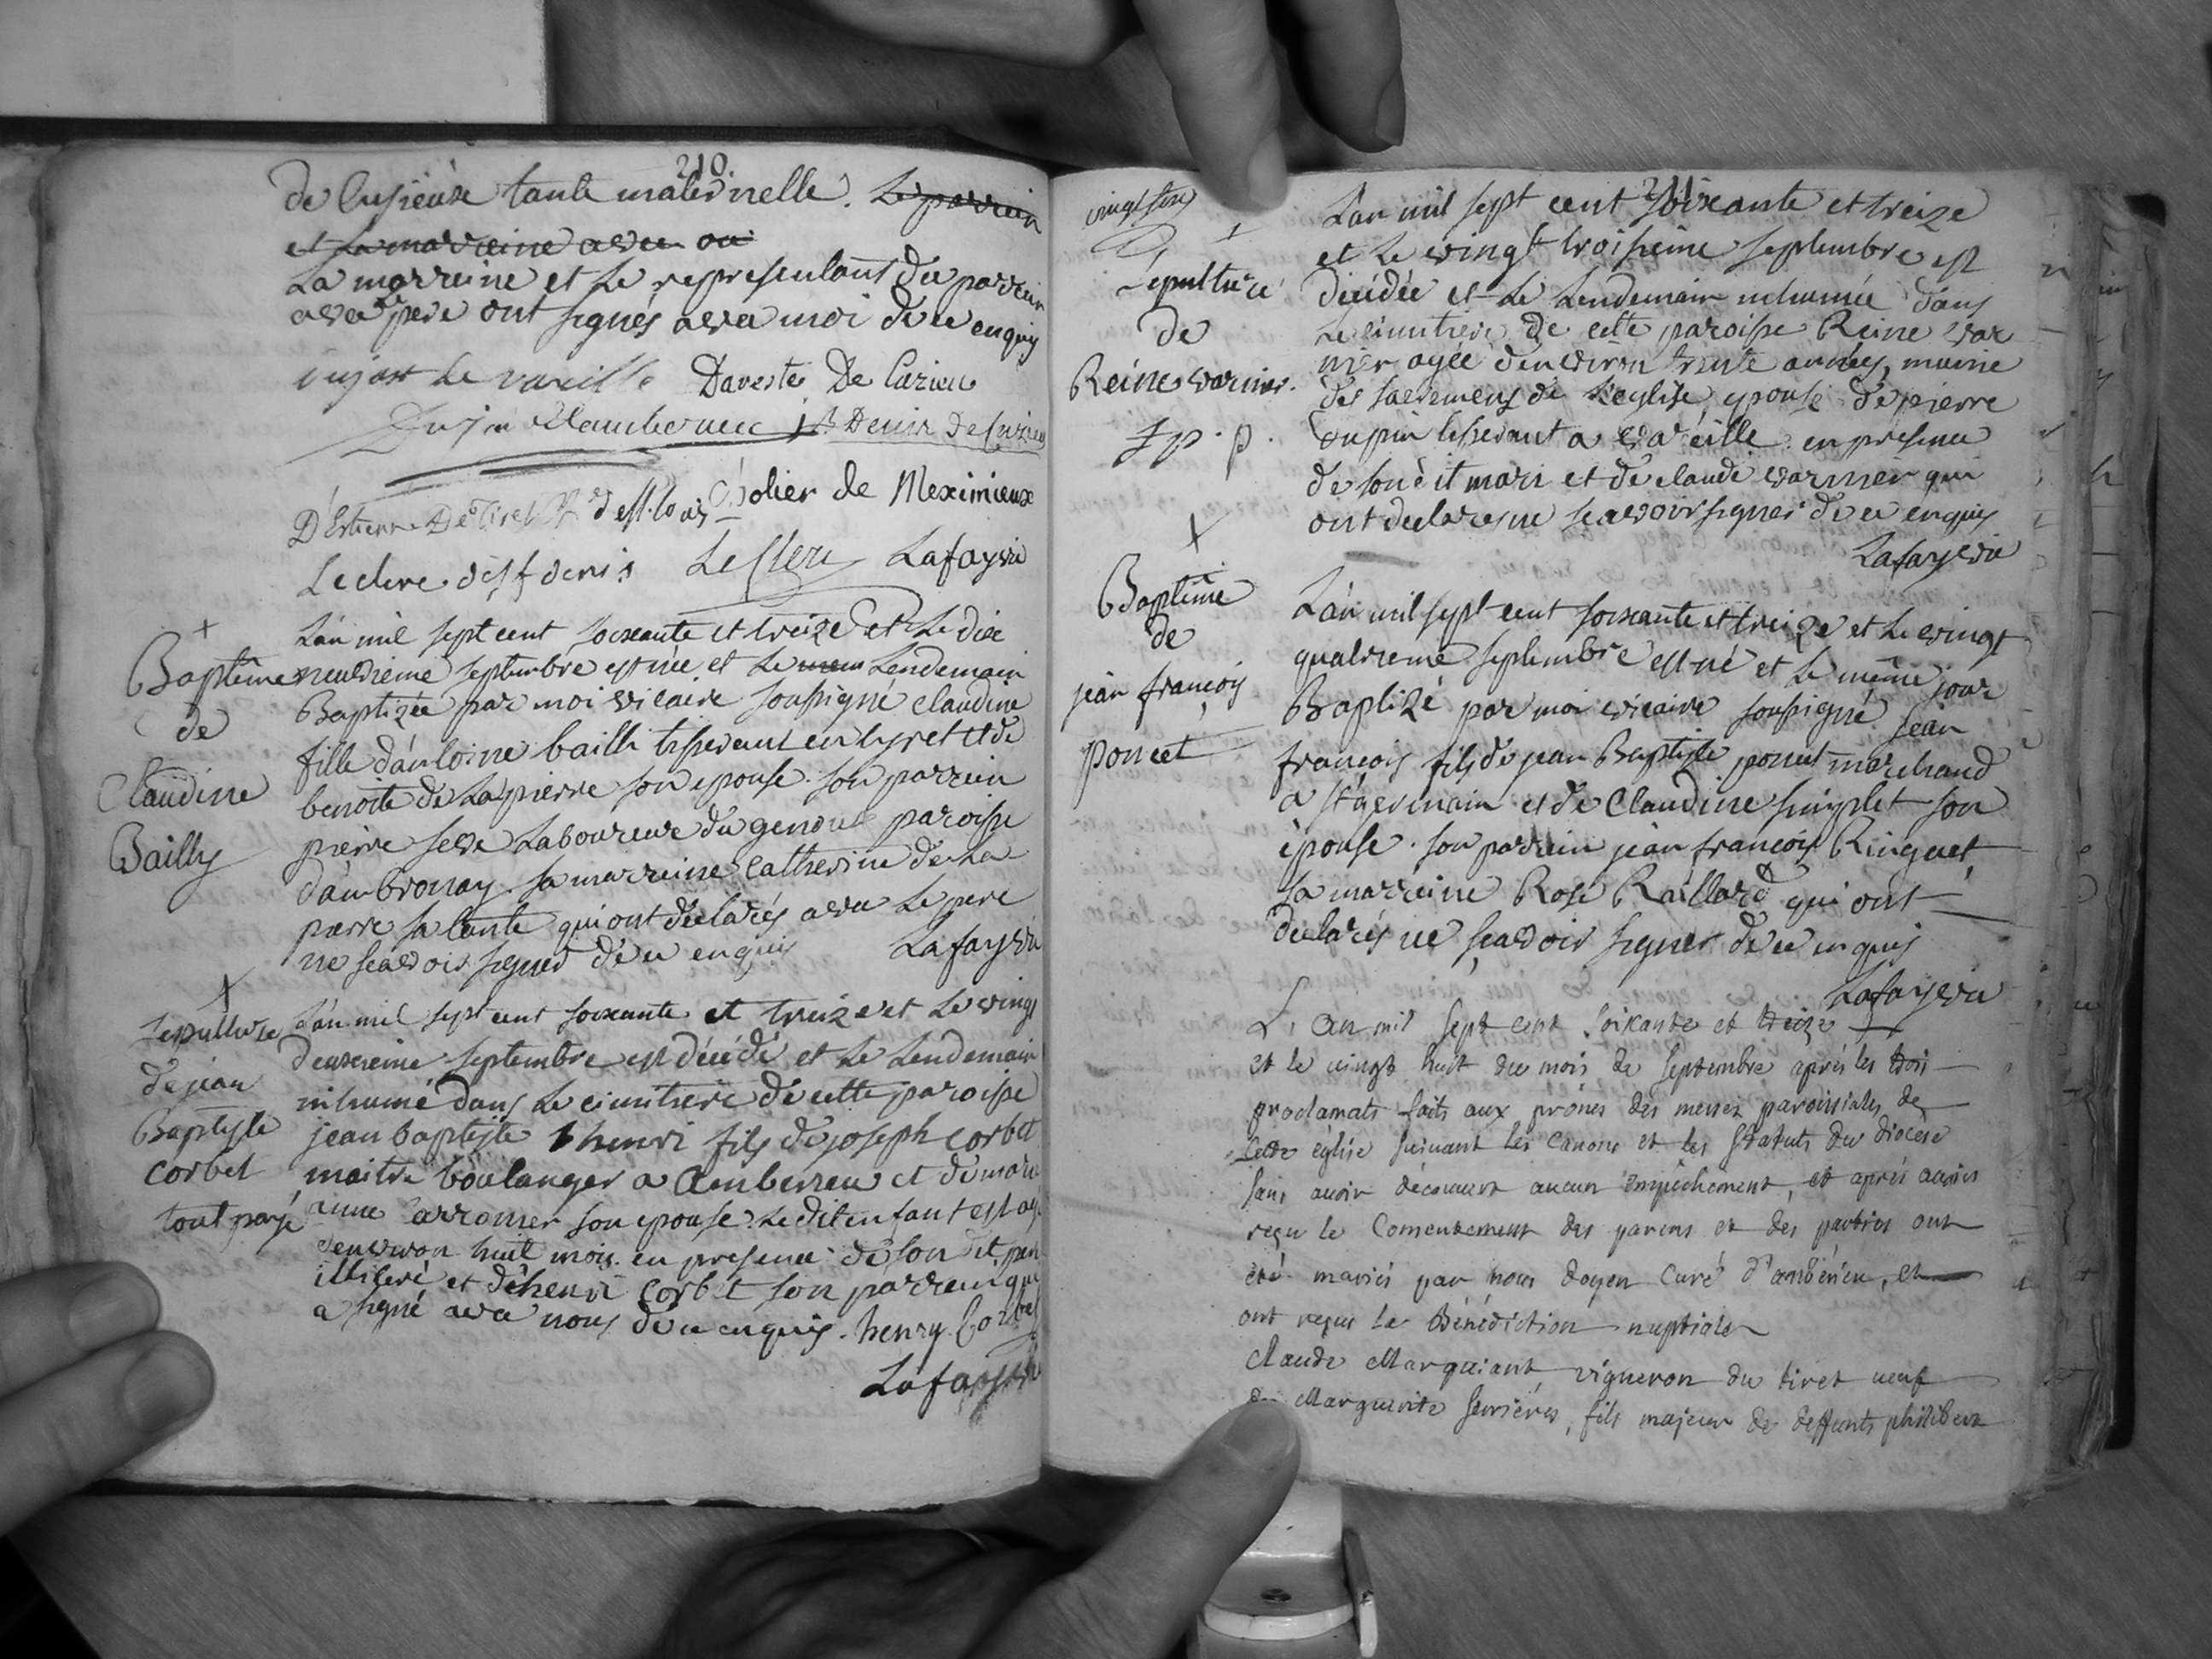 210.
de lusieux tante maternelle. Le parrein
et sa marreine avec ou
La marreine et le representant du parrein
avec le pere ont signés avec moi de ce enquis
Daveste De Curieu
D'Estienne De Tiret
Cholier de Meximieux
Leclerc de st denis Leclerc Lafaysvi
+
Baptême
de
Claudine
Bailly
L'an mil sept cent soixante et treize et le dix
neuvieme septembre est née et le mem lendemain
Baptizée par moi vicaire soussigné Claudine
fille d'antoine bailli tisserant en tyret et de
benoite de Lapierre son epouse. son parrein
pierre seve Laboureur du genoud paroisse
d'ambronay. sa marreine Catherine de La
pierre sa tante qui ont declarés avec le pere
ne scavoir signer de ce enquis Lafaysvi
+
Sepulture
de jean
Baptiste
Corbet
tout payé
L'an mil sept cent soixante et treize et le vingt
deuxieme septembre est décédé et le lendemain
inhumé dans le cimitiere de cette paroisse
jean baptiste henri fils de joseph Corbet
maitre boulanger a Amberieu et de marie
anne arromier son epouse. le dit enfant est agé
d'environ huit mois. en presence de son dit pere
illiteré et de henri Corbet son parrein qui
a signé avec nous de ce enquis. henry Corbet
Lafaysvi
211.
vingt six
+
Sepulture
de
Reine varnier.
L'an mil sept cent soixante et treize
et le vingt troisieme septembre est
décédée et le lendemain inhumée dans
le cimitiere de cette paroisse Reine var
nier agée d'environ trente années, munie
des sacremens de l'eglise, epouse de pierre
Dupin tisserant a vareille. en presence
de son dit mari et de claude varnier qui
ont declarés ne scavoir signer de ce enquis
Lafaysvi
+
Baptême
de
jean françois
poncet
L'an mil sept cent soixante et treize et le vingt
quatrieme septembre est né et le même jour
Baptizé par moi vicaire soussigné jean
françois fils de jean Baptiste poncet marchand
a st germain et de Claudine simplet son
épouse. son parrein jean françois Ringuet,
sa marreine Rose Raillard qui ont
declarés ne scavoir signer de ce enquis
Lafaysvi
L'an mil sept cent soixante et treize
et le vingt huit du mois de septembre après les trois
proclamats faits aux prones des messes paroissiales de
cette église suivant les canons et les statuts du diocèse
sans avoir découvert aucun empêchement, et après avoir
reçu le consentement des parens et des parties ont
été mariés par nous doyen curé d'ambérieu, et
ont reçu la Bénédiction nuptiale
Claude Marguiant vigneron du tiret veuf
de Marguerite serrières, fils majeur de deffunts philibert